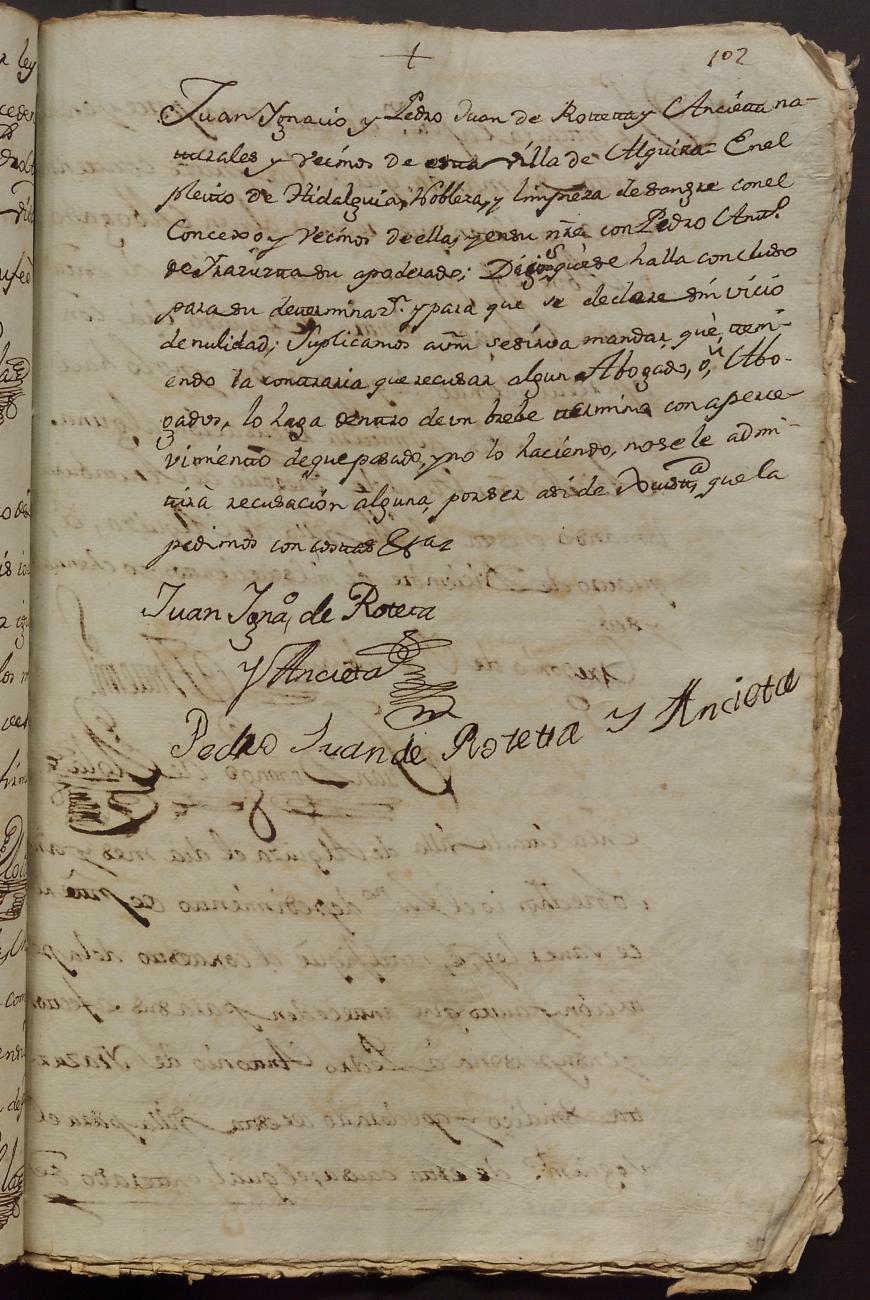 + 102
Juan Ygnacio y Pedro Juan de Rotetta y Ancietta na-
tturales y vecinos de estta villa de Alquiza = En el
pleito de Hidalguia, Nobleza, y limpieza de sangre con el
Concexo y vecinos de ella, y en su nre con Pedro Antt.º
de Yrazuzta su apoderado; Dezimos que se halla concluso
para su determinaz.n y para que se declare sin vicio
de nulidad; Suplicamos a vm se sirva mandar, què, tteni-
endo la conttraria que recusar algun Abogado, ò, Abo-
gados, lo haga denttro de un brebe ttermino con aperce-
vimientto de que pasado, y no lo haciendo, no se le admi-
ttirà recusación alguna, por ser asi de Justt.a que la
pedimos con costtas Ettaz
Juan Ygna.º de Roteta
Y Ancieta
Pedro Juan de Rotetta Y Ancieta